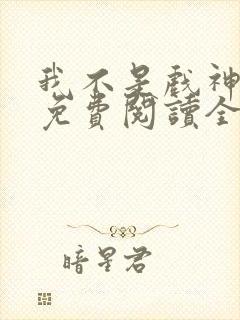 我不是戲神
免費閱讀全
暗星君